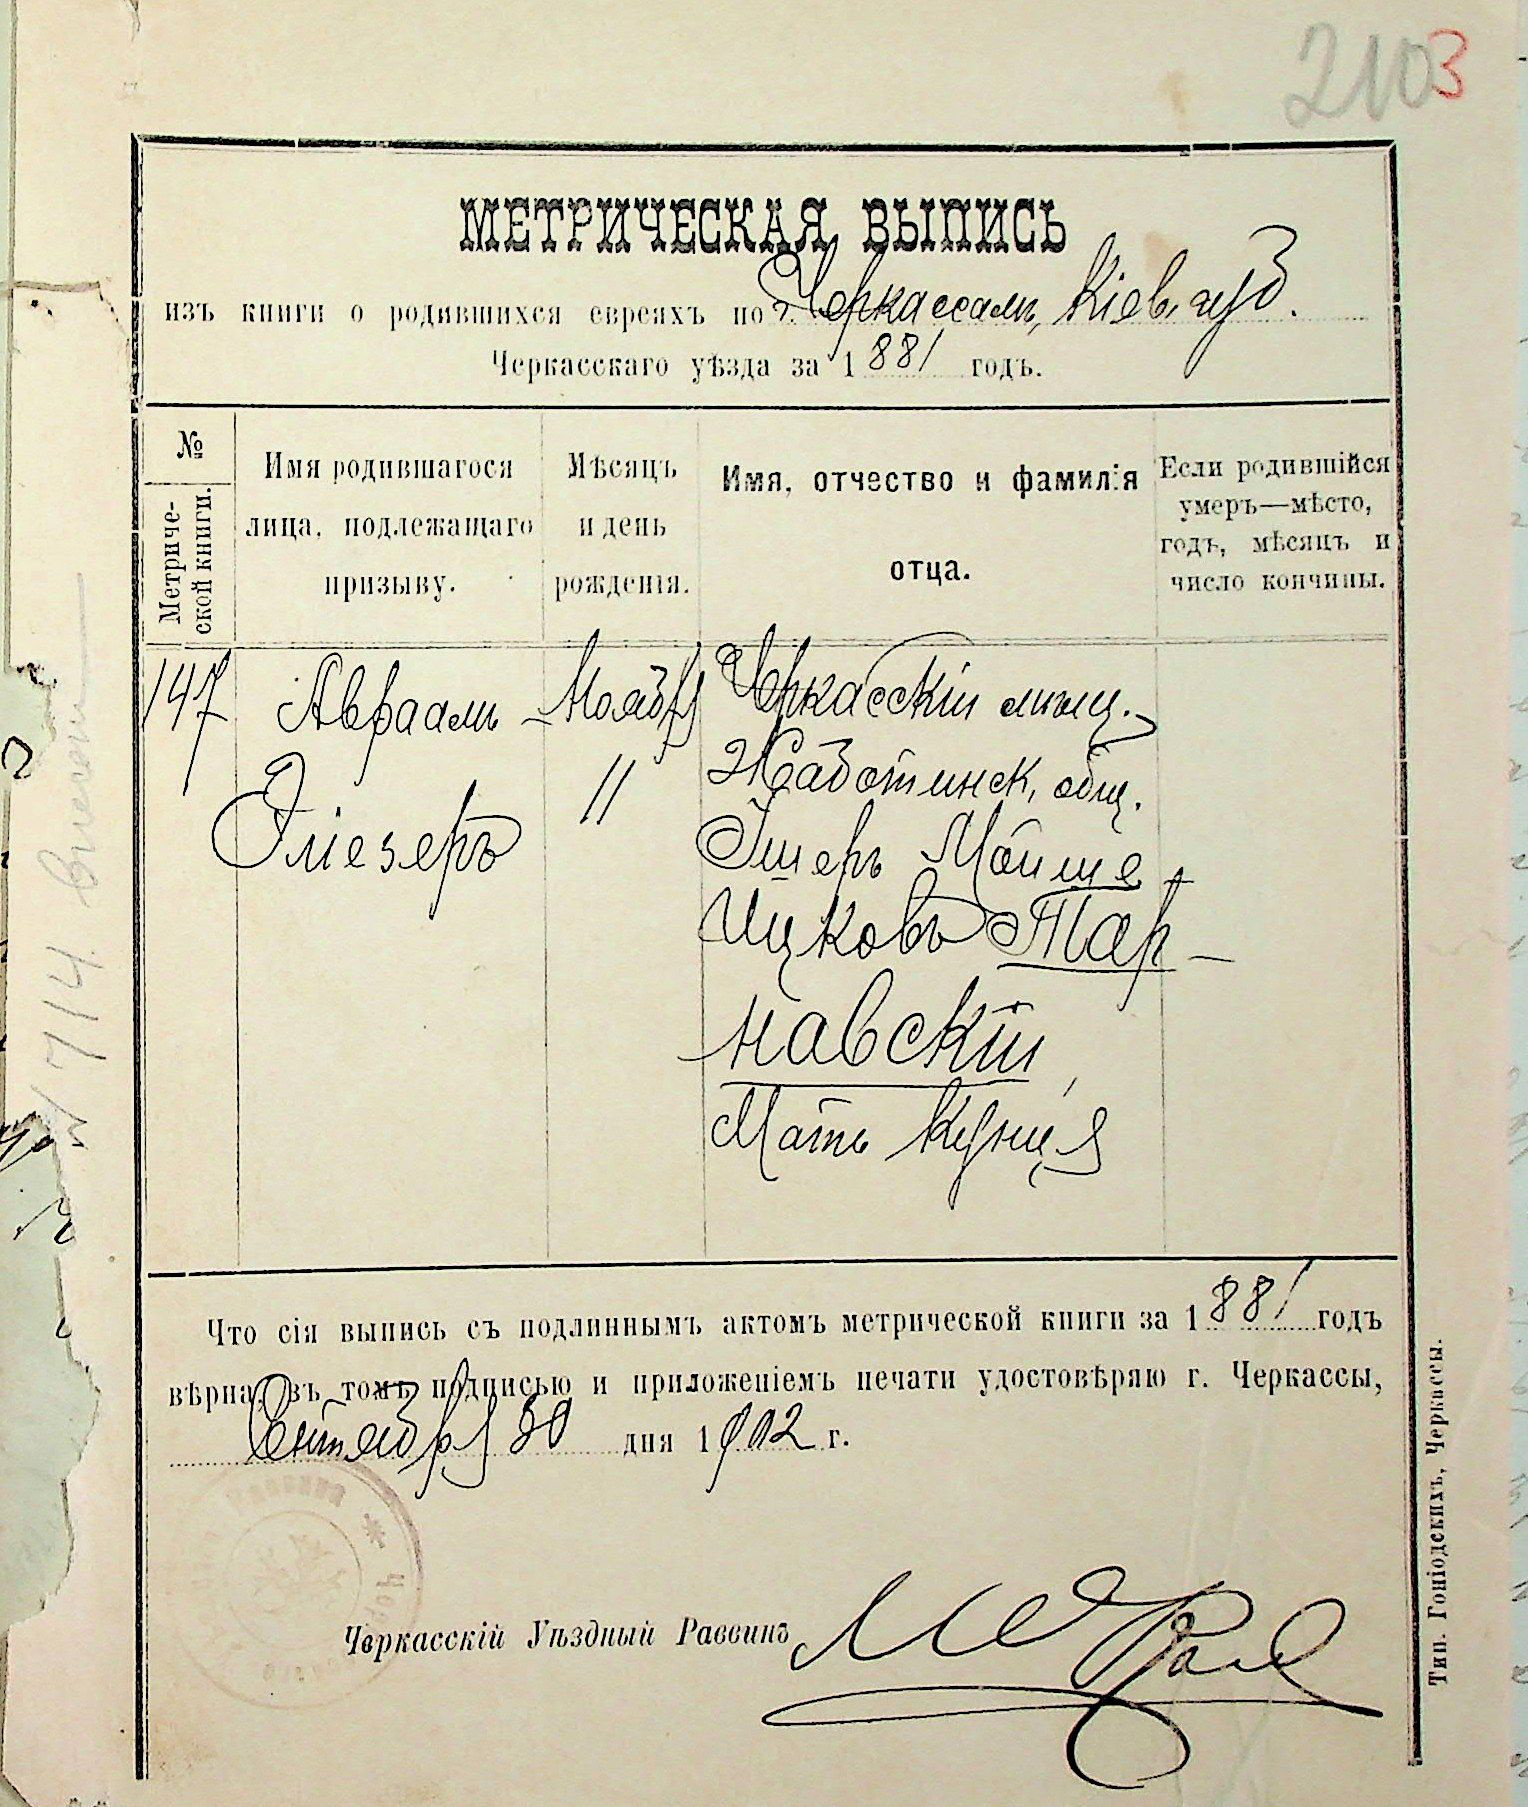 2103
МЕТРИЧЕСКАЯ ВЫПИСЬ
изъ книги о родившихся евреяхъ по г. Черкассамъ, Кіев. губ.
Черкасскаго уѣзда за 1881 годъ.
№ Метриче-ской книги.
Имя родившагося лица, подлежащаго призыву.
Мѣсяцъ и день рожденія.
Имя, отчество и фамилія отца.
Если родившійся умеръ—мѣсто, годъ, мѣсяцъ и число кончины.
147 Авраамъ - Ноября Черкасскій мѣщ.
Эліезеръ 11 Жаботинск. общ.
Эшеръ Мойше -
Ицковъ Тар -
навскій,
Мать Куниця
Что сія выпись съ подлиннымъ актомъ метрической книги за 1881 годъ
вѣрна, въ томъ подписью и приложеніемъ печати удостовѣряю г. Черкассы,
Сентября 30 дня 1902 г.
Черкасскій Уѣздный Раввинъ
Тип. Гоніодскихъ, Черкассы.
№ 714